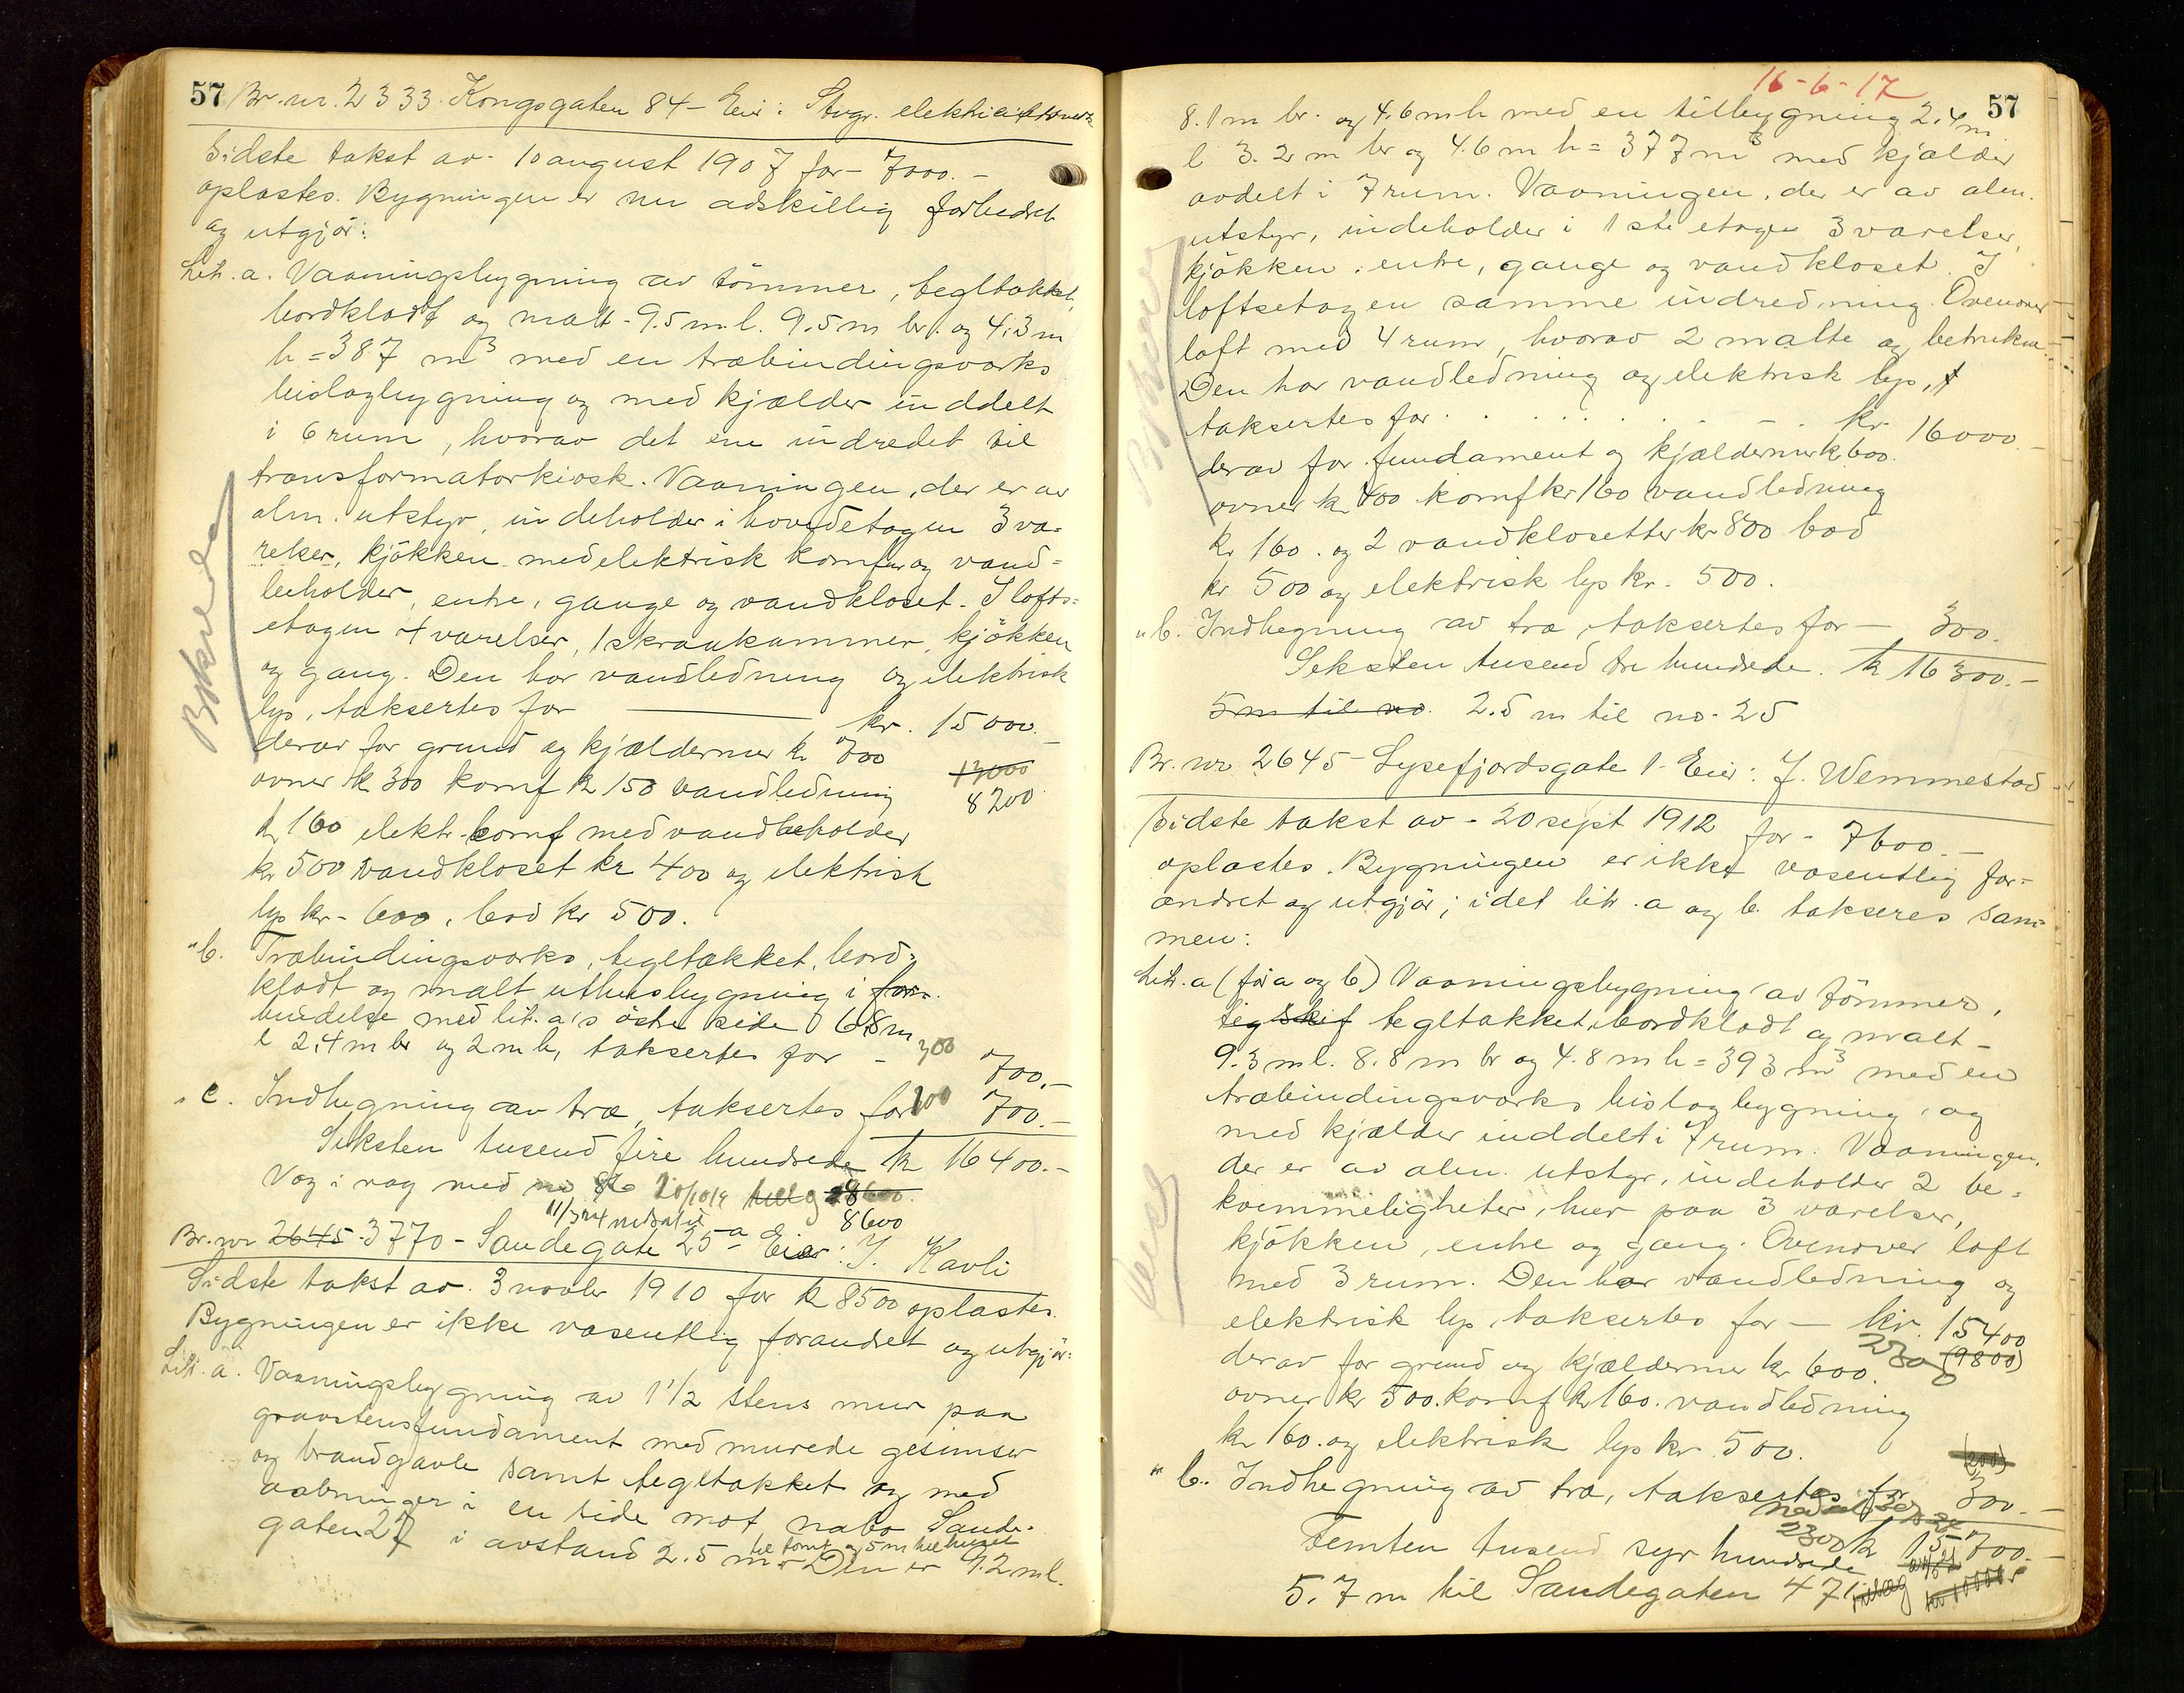 57 Br. nr. 2333. Kongsgaten 84 - Eier: Stvgr. elektricitetsverk
Sidste takst av - 10 august 1907 for - 7000. -
oplæstes. Bygningen er nu adskillig forbedret
og utgjör:
Lit. a. Vaaningsbygning av tömmer, tegltækket,
bordklædt og malt - 9.5 m l. 9.5 m br. og 4.3 m
h = 387 m3 med en træbindingsværks
bislagbygning og med kjælder inddelt
i 6 rum, hvorav det ene indredet til
transformatorkiosk. Vaaningen, der er av
alm. utstyr, indeholder i hovedetagen 3 væ-
relser, kjökken med elektrisk komfur og vand-
beholder, entre, gange og vandkloset. I lofts-
etagen 4 værelser, 1 skraakammer, kjökken
og gang. Den har vandledning og elektrisk
lys, taksertes for kr. 15000. -
derav for grund og kjældermur kr 700
13000
ovner kr 300 komf kr 150 vandledning
8200
kr 160 elektr. komf med vandbeholder
kr 500 vandkloset kr 400 og elektrisk
lys kr - 600, bod kr 500.
" b. Træbindingsværks, tegltækket, bord-
klædt og malt uthusbygning i for-
bindelse med lit. a's östre side 6.8 m
l 2.4 m br og 2 m h, taksertes for - 300 700. -
" c. Indhegning av træ, taksertes for 100 700. -
Seksten tusend fire hundrede kr 16400. -
Væg i væg med no 86 20/10 19 tillæg 28600.
11/3 24 nedsat til 8600
Br. nr 2645 - 3770 - Sandegate 25 a Eier: I. Kavli
Sidste takst av 3 novbr 1910 for kr 8500 oplæstes.
Bygningen er ikke væsentlig forandret og utgjör:
Lit. a. Vaaningsbygning av 1 1/2 stens mur paa
graastensfundament med murede gesimser
og brandgavle samt tegltækket og med
aabninger i en side mot nabo Sande-
gaten 27 i avstand 2.5 m til tomt og 5 m til huset - Den er 9.2 m l.
16-6-17
57
8.1 m br. og 4.6 m h med en tilbygning 2.4 m
l 3.2 m br og 4.6 m h = 377 m3 med kjælder
avdelt i 7 rum. Vaaningen, der er av alm.
utstyr, indeholder i 1ste etage 3 værelser,
kjökken, entre, gange og vandkloset. I
loftsetagen samme indredning. Ovenover
loft med 4 rum, hvorav 2 malte og betrukne.
Den har vandledning og elektrisk lys, t
taksertes for . . . . . . kr. 16000. -
derav for fundament og kjældermur kr 600.
ovner kr 400 komf kr 160 vandledning
kr 160. og 2 vandklosetter kr 800 bad
kr 500 og elektrisk lys kr. 500.
" b. Indhegning av træ, taksertes for - 300.
Seksten tusend tre hundrede. kr 16300. -
5 m til no. 2.5 m til no. 25
Br. nr 2645 - Lysefjordsgate 1 - Eier: J. Wemmestad
Sidste takst av - 20 sept 1912 for - 7600. -
oplæstes. Bygningen er ikke væsentlig for-
andret og utgjör; idet litr. a og b. takseres sam-
men:
Lit. a (för a og b) Vaaningsbygning av tömmer,
tegltækket, bordklædt og malt -
9.3 m l. 8.8 m br og 4.8 m h = 393 m3 med en
træbindingsværks bislagbygning, og
med kjælder inddelt i 7 rum. Vaaningen,
der er av alm. utstyr, indeholder 2 be-
kvemmeligheter, hver paa 3 værelser,
kjökken, entre og gang. Ovenover loft
med 3 rum. Den har vandledning og
elektrisk lys, taksertes for - kr. 15400
(9800)
derav for grund og kjældermur kr 600.
ovner kr 500. komf kr 160. vandledning
kr 160. og elektrisk lys kr. 500.
(200)
" b. Indhegning av træ, taksertes for 300. -
Femten tusend syv hundrede kr 15700. -
5.7 m til Sandegaten 47.